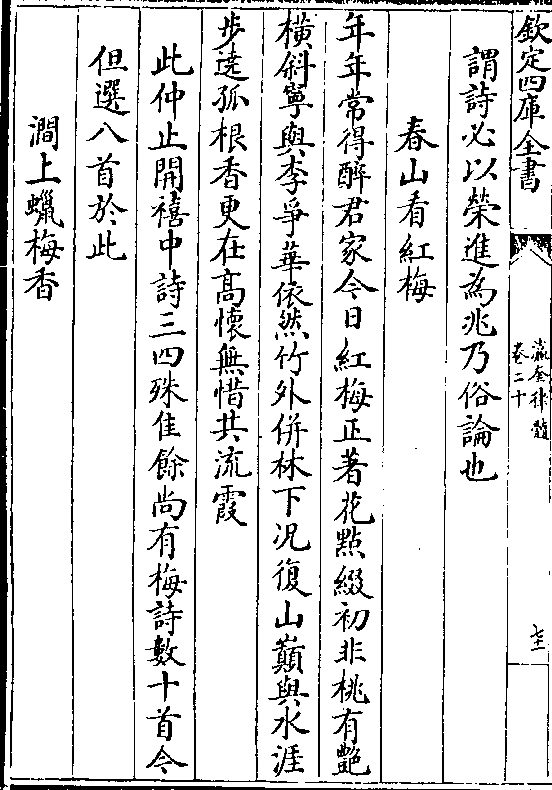 欽定四庫全書
瀛奎律髓
卷二十
謂詩必以榮進為兆乃俗論也
春山看紅梅
年年常得醉君家今日紅梅正著花點綴初非桃有艷
橫斜寧與李爭華依然竹外併林下况復山巔與水涯
步遶孤根香更在高懷無惜共流霞
此仲止開禧中詩三四殊佳餘尚有梅詩數十首今
但選八首於此
澗上蠟梅香